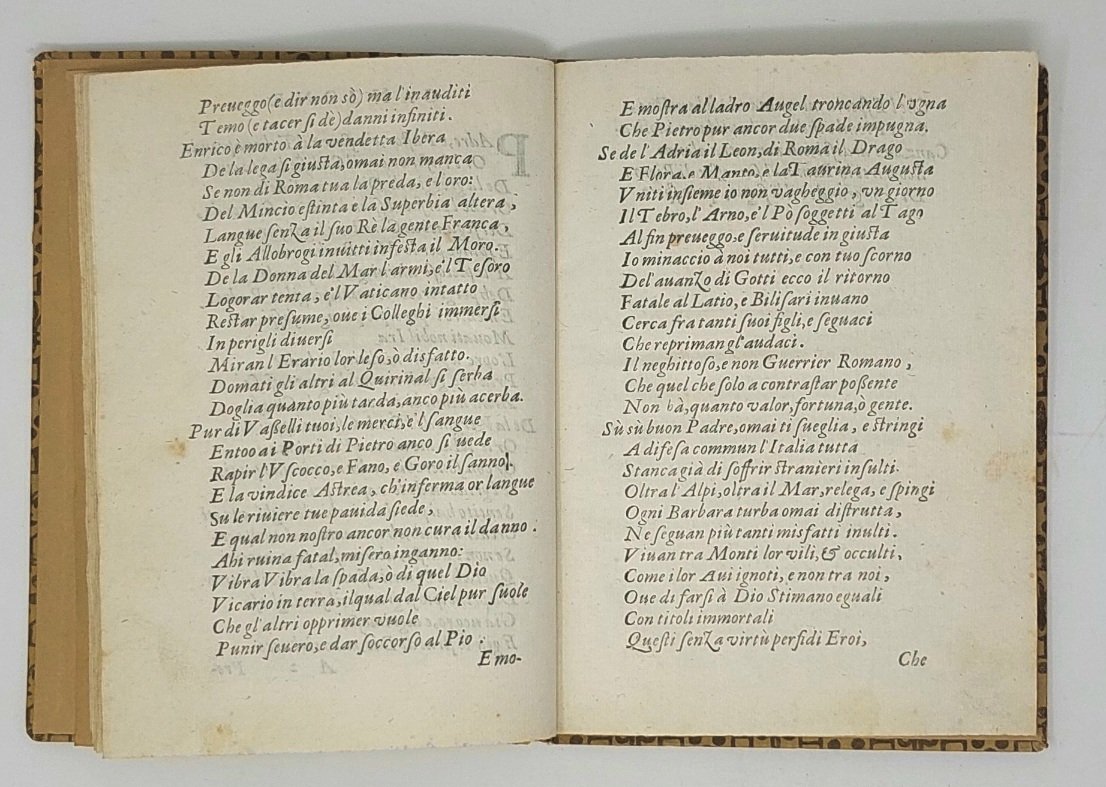 Preueggo (e dir non sò) ma l'inauditi
Temo (e tacer si dè) danni infiniti.
Enrico è morto à la vendetta Ibera
De la lega si giusta, omai non manca
Se non di Roma tua la preda, e l'oro:
Del Mincio estinta e la Superbia altera,
Langue senza il suo Rè la gente Franca,
E gli Allobrogi inuitti infesta il Moro.
De la Donna del Mar l'armi, e'l Tesoro
Logorar tenta, e'l Vaticano intatto
Restar presume, oue i Colleghi immersi
In perigli diuersi
Miran l'Erario lor leso, ò disfatto.
Domati gli altri al Quirinal si serba
Doglia quanto più tarda, anco più acerba.
Pur di Vasselli tuoi, le merci, e'l sangue
Entoo ai Porti di Pietro anco si uede
Rapir l'Vscocco, e Fano, e Goro il sanno.
E la vindice Astrea, ch'inferma or langue
Su le riuiere tue pauida siede,
E qual non nostro ancor non cura il danno:
Ahi ruina fatal, misero inganno:
Vibra Vibra la spada, ò di quel Dio
Vicario in terra, il qual dal Ciel pur suole
Che gl'altri opprimer vuole
Punir seuero, e dar soccorso al Pio:
E mo-
E mostra al ladro Augel troncando l'vgna
Che Pietro pur ancor due spade impugna.
Se de l'Adria il Leon, di Roma il Drago
E Flora, e Manto, e la Taurina Augusta
Vniti insieme io non vagheggio, vn giorno
Il Tebro, l'Arno, e'l Pò soggetti al Tago
Al fin preueggo, e seruitude ingiusta
Io minaccio à noi tutti, e con tuo scorno
Del'auanzo di Gotti ecco il ritorno
Fatale al Latio, e Bilisari inuano
Cerca fra tanti suoi figli, e seguaci
Che repriman gl'audaci.
Il neghittoso, e non Guerrier Romano,
Che quel che solo a contrastar possente
Non hà, quanto valor, fortuna, ò gente.
Sù sù buon Padre, omai ti sueglia, e stringi
A difesa commun l'Italia tutta
Stanca già di soffrir stranieri insulti.
Oltra l'Alpi, oltra il Mar, relega, e spingi
Ogni Barbara turba omai distrutta,
Ne seguan più tanti misfatti inulti.
Viuan tra Monti lor vili, & occulti,
Come i lor Aui ignoti, e non tra noi,
Oue di farsi à Dio Stimano eguali
Con titoli immortali
Questi senza virtù perfidi Eroi,
Che